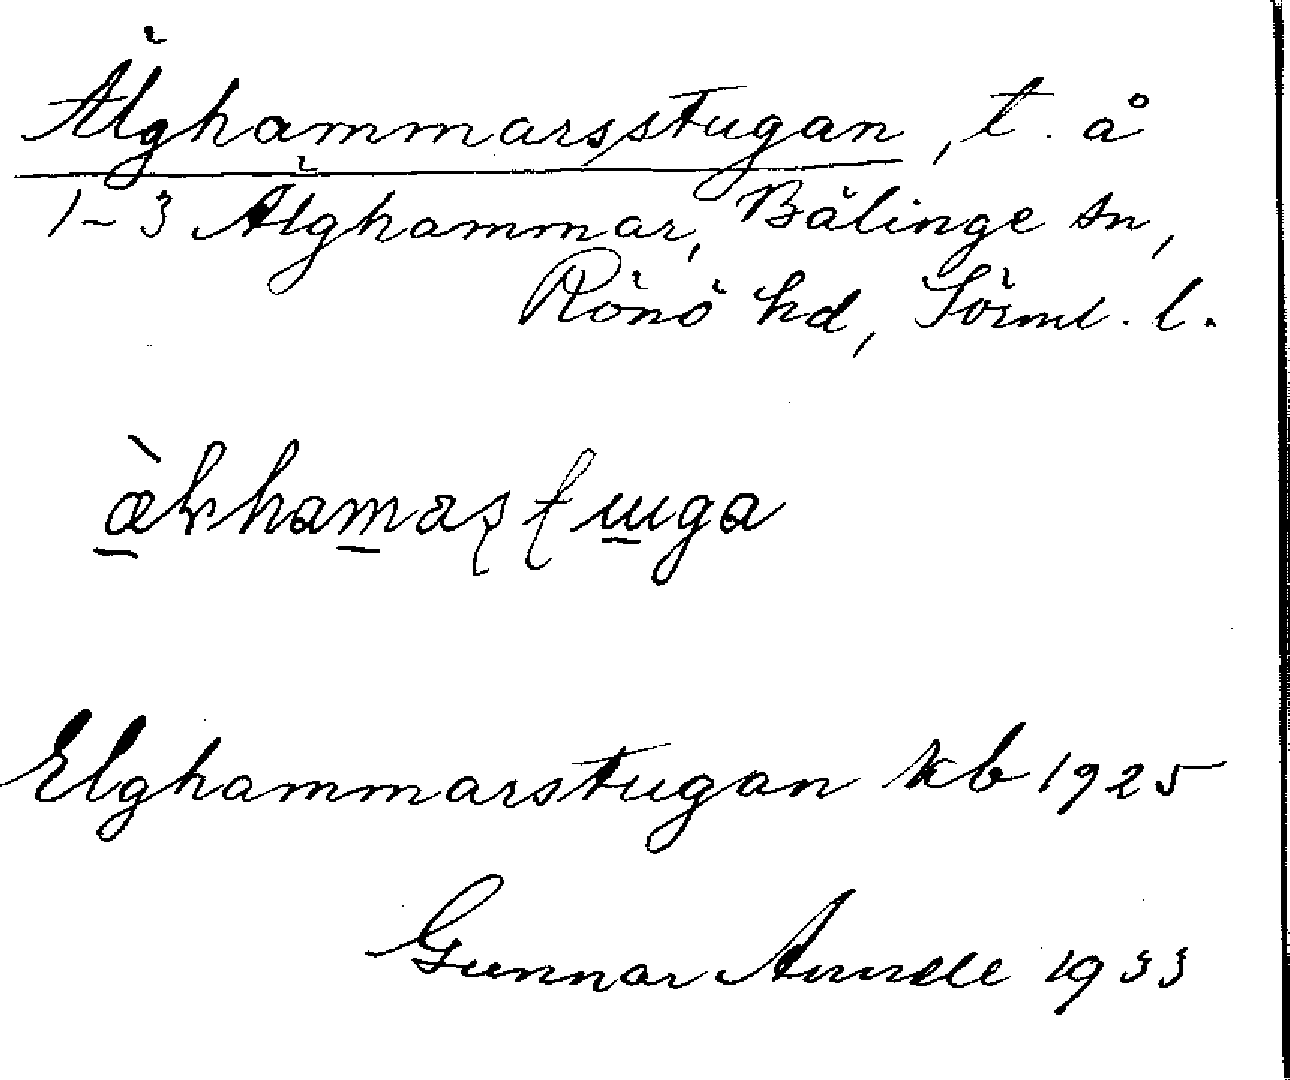 Älghammarsstugan, t. å
1-3 Älghammar, Bälinge sn,
Rönö hd, Sörml. l.
Elghammarstugan kb 1925
Gunnar Amnell 1933